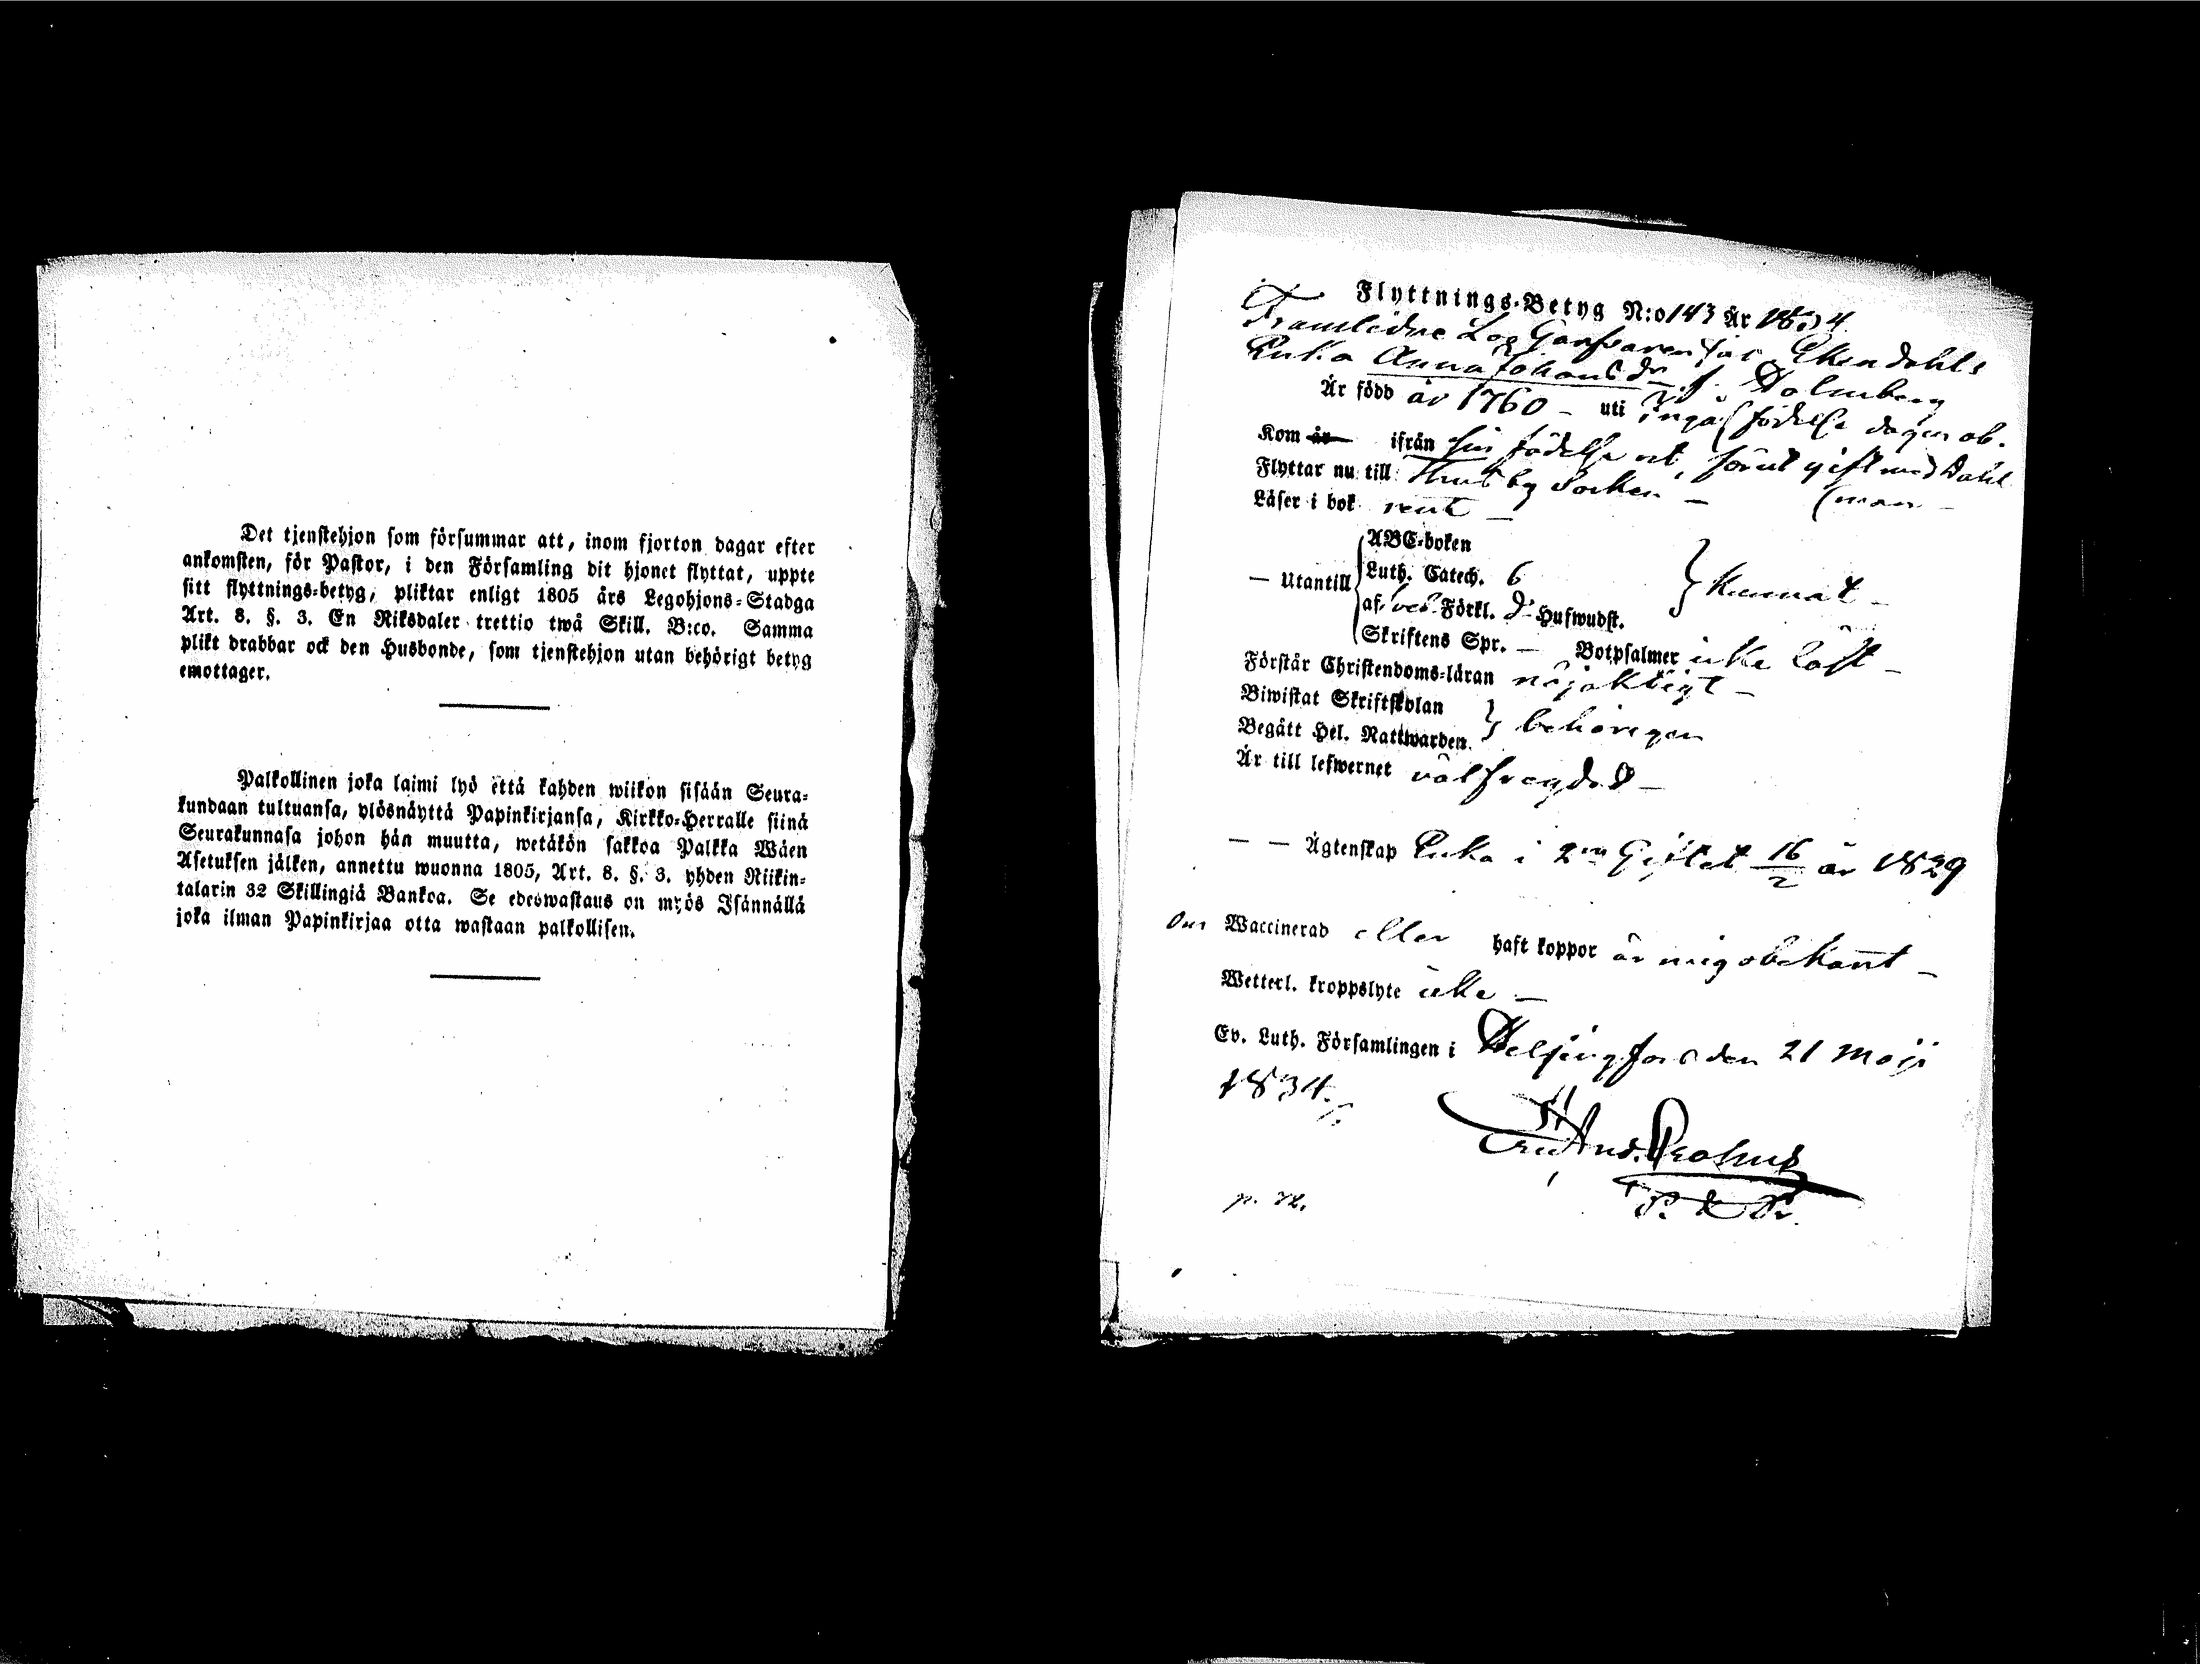 Det tjenstehjon som försummar att, inom fjorton dagar efter
ankomsten, för Pastor, i den Församling dit hjonet flyttat, uppte
sitt flyttnings=betyg, pliktar enligt 1805 års Legohjons=Stadga
Art. 8. §. 3. En Riksdaler trettio twå Skill. B:co. Samma
plikt drabbar ock den Husbonde, som tjenstehjon utan behörigt betyg
emottager.
Palkollinen joka laimi lyö että kahden wiikon sisään Seura=
kundaan tultuansa, ylösnäyttä Papinkirjansa, Kirkko=Herralle siinä
Seurakunnasa johon hän muutta, wetäkön sakkoa Palkka Wäen
Asetuksen jälken, annettu wuonna 1805, Art. 8. §. 3. yhden Riikin=
talarin 32 Skillingiä Bankoa. Se edeswastaus on myös Isännällä
joka ilman Papinkirjaa otta wastaan palkollisen.
Flyttnings=Betyg N:o 143 År 1834
Framlidne
Enka Anna Johans dr f. Holmberg
Är född år 1760 — uti Ingå födelse dagen ob.
Kom år ifrån sin födelse ort, förut gift med Dahl
Flyttar nu till Socken — (man —
Läser i bok rent —
ABC=boken
— Utantill Luth. Catech. 6 } Kunnat —
af Förkl. Hufwudst.
Skriftens Spr. — Botpsalmer icke läst —
Förstår Christendoms=läran nöjaktigt —
Biwistat Skriftskolan
Begått Hel. Nattwarden } behörigen
Är till lefwernet välfrägdad —
— — Ägtenskap Enka i 2:a Giftet 16/2 år 1829
Om Waccinerad eller haft koppor är mig obekant —
Wetterl. kroppslyte icke —
Ev. Luth. Församlingen i Helsingfors den 21 Maji
1834.